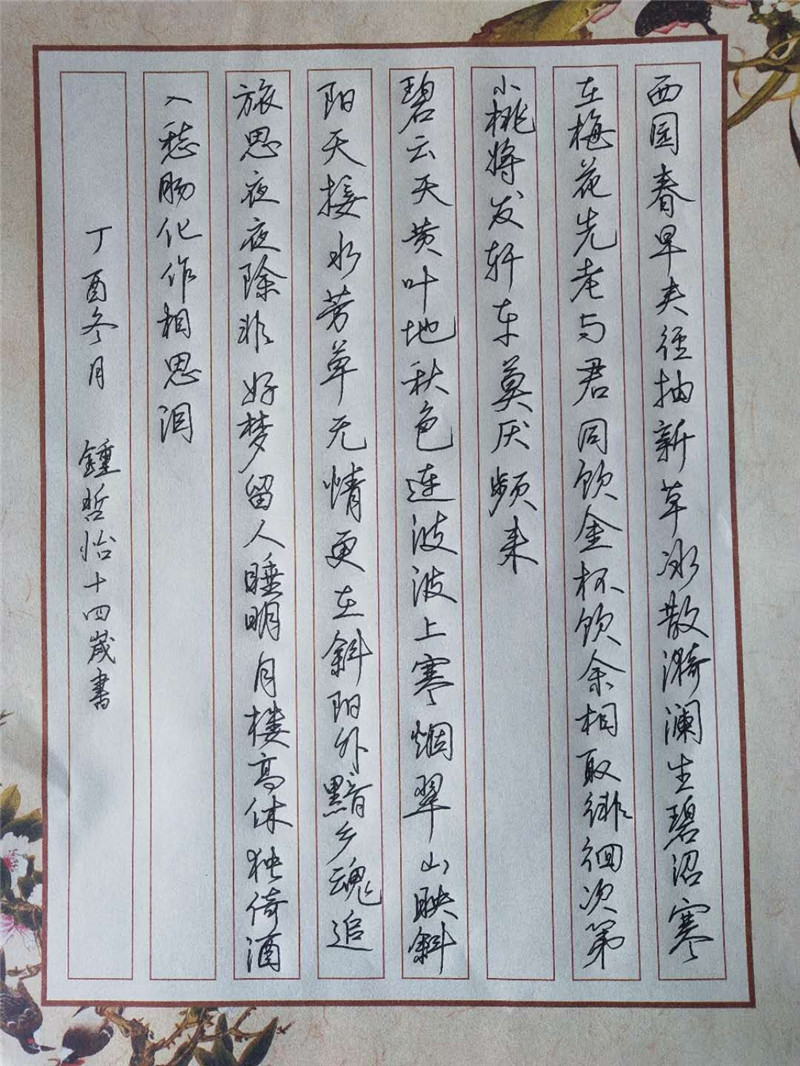 西园春早夹径抽新草冰散漪澜生碧沼寒
在梅花先老与君同饮金杯饮余相取徘徊次第
小桃将发轩车莫厌频来
碧云天黄叶地秋色连波波上寒烟翠山映斜
阳天接水芳草无情更在斜阳外黯乡魂追
旅思夜夜除非好梦留人睡明月楼高休独倚酒
入愁肠化作相思泪
丁酉冬月 锺哲怡十四岁书